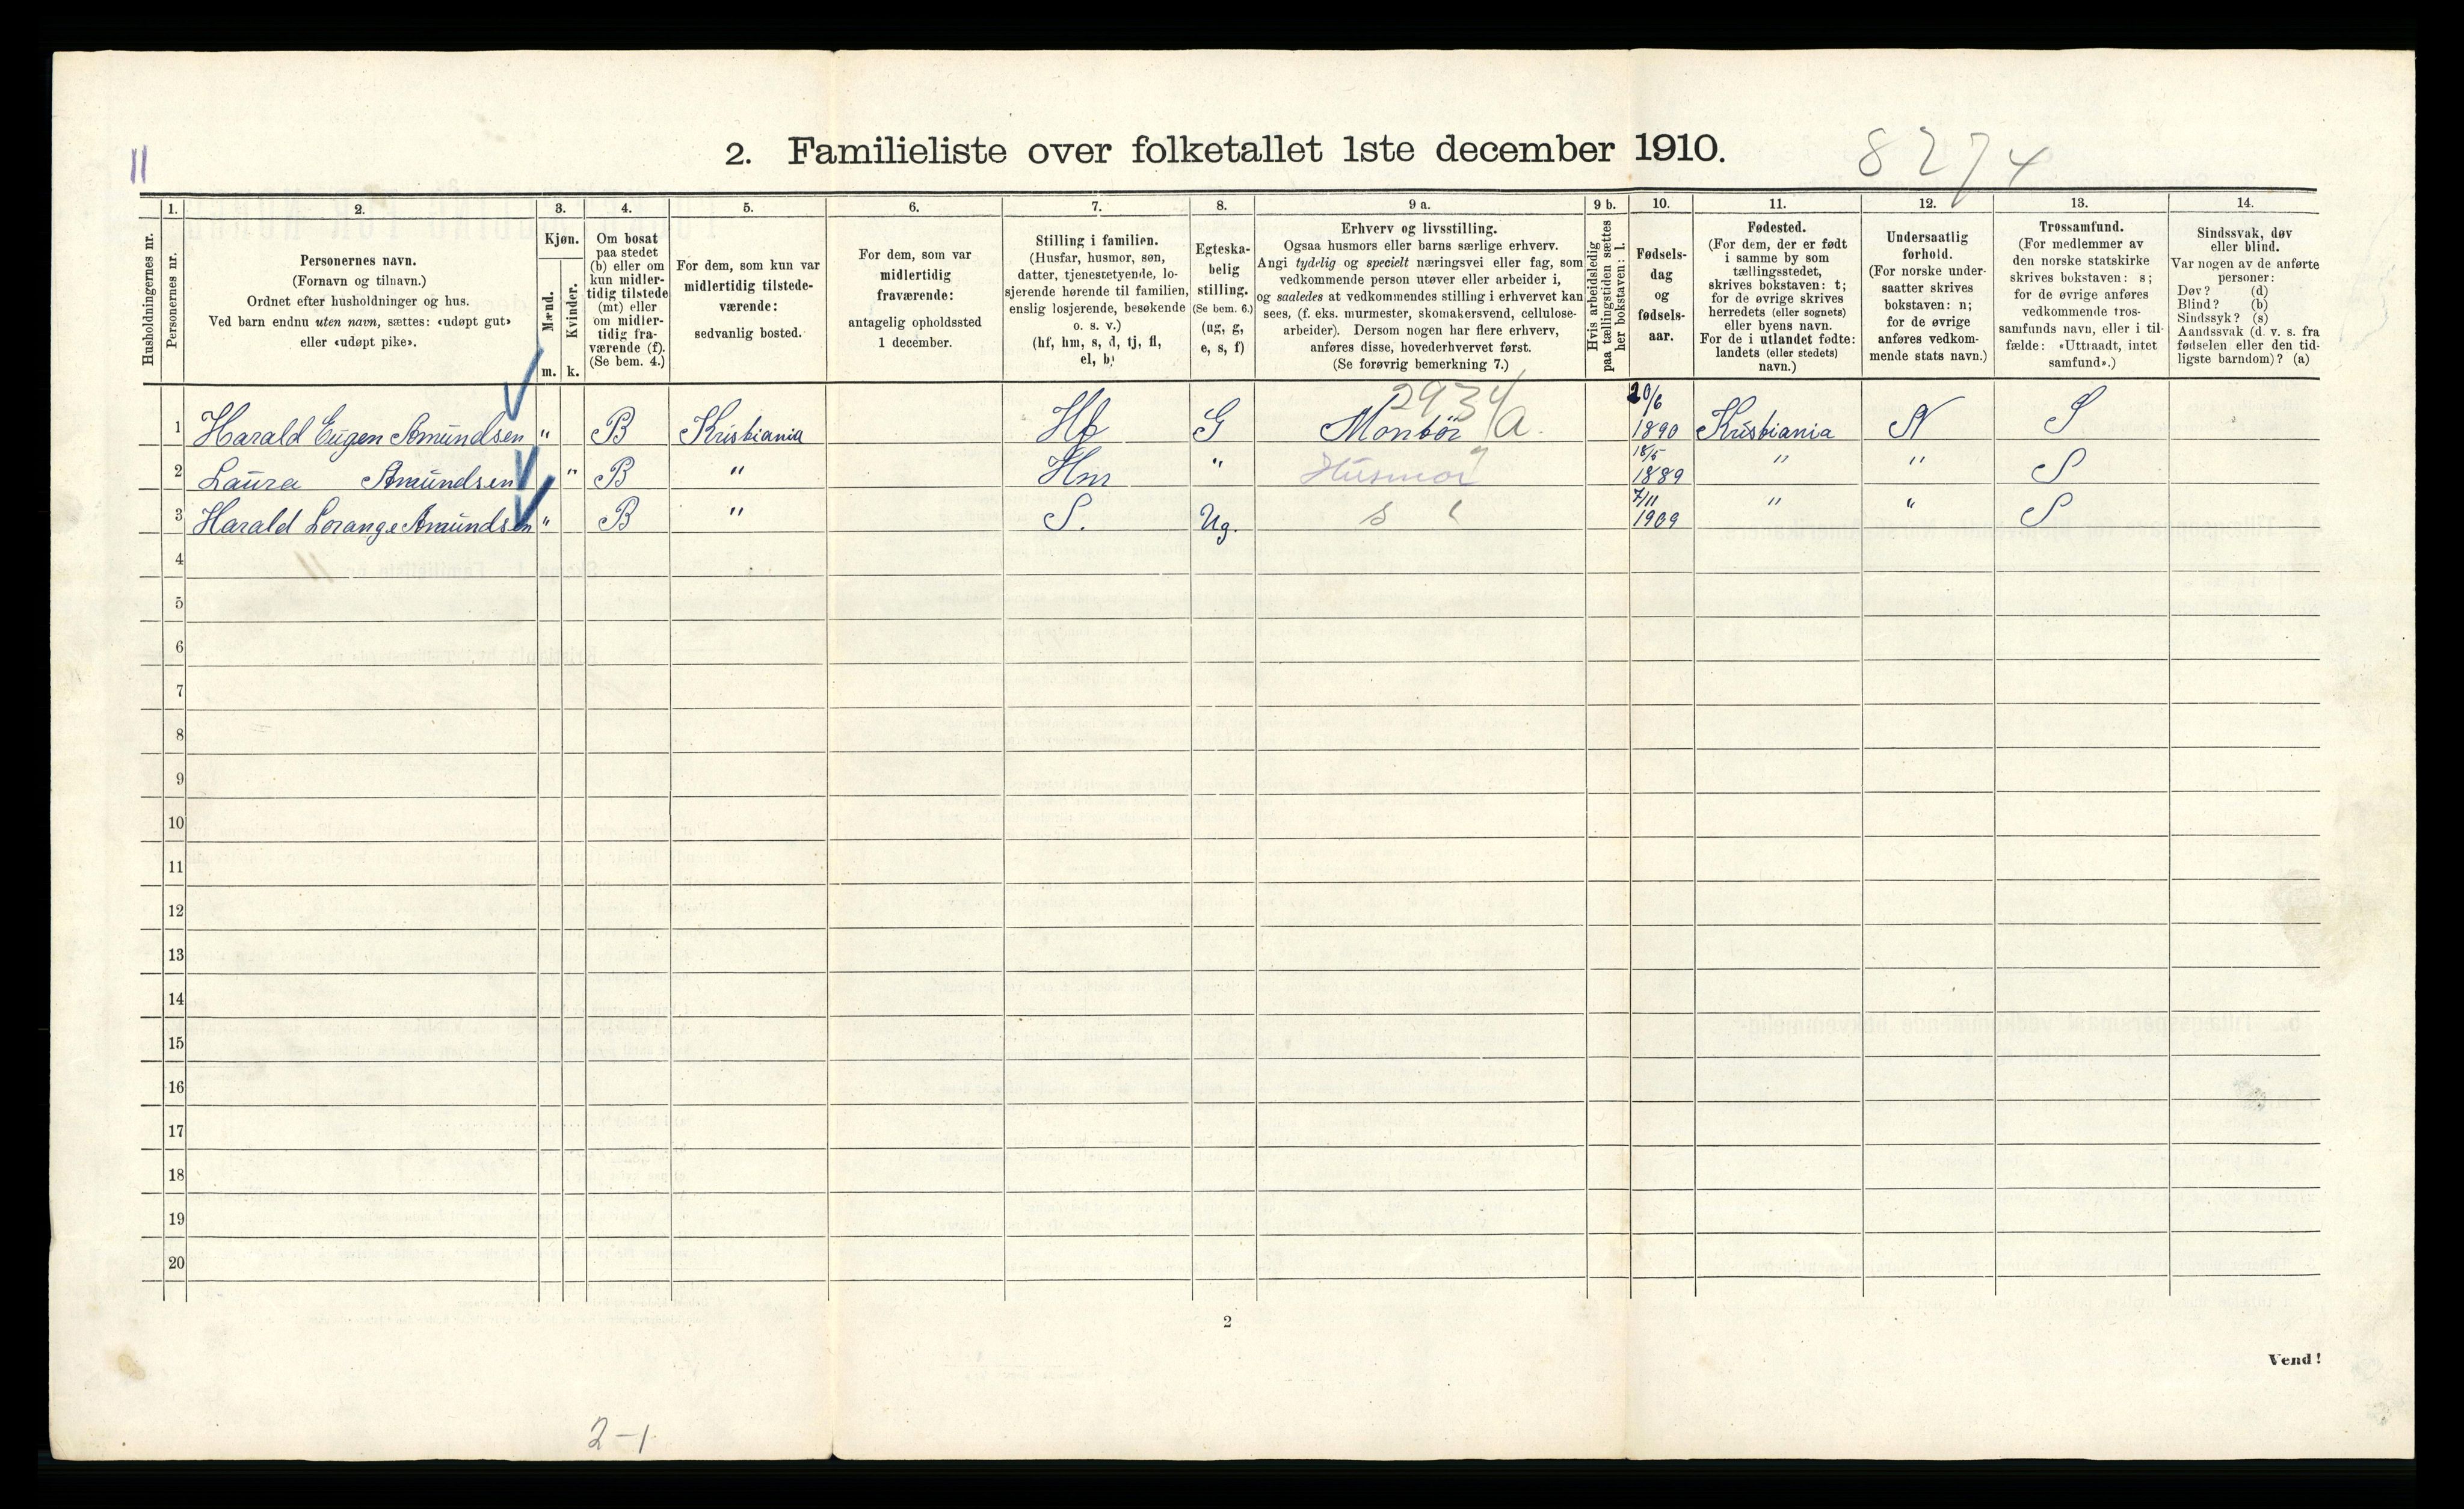 2. Familieliste over folketallet 1ste december 1910.
8274
11
1. 2. 3. 4. 5. 6. 7. 8. 9 a. 9 b. 10. 11. 12. 13. 14.
Husholdningernes nr.
Personernes nr.
Personernes navn.
(Fornavn og tilnavn.)
Ordnet efter husholdninger og hus.
Ved barn endnu uten navn, sættes: «udøpt gut»
eller «udøpt pike».
Kjøn.
Mænd.
Kvinder.
m. k.
Om bosat
paa stedet
(b) eller om
kun midler-
tidig tilstede
(mt) eller
om midler-
tidig fra-
værende (f).
(Se bem. 4.)
For dem, som kun var
midlertidig tilstede-
værende:
sedvanlig bosted.
For dem, som var
midlertidig
fraværende:
antagelig opholdssted
1 december.
Stilling i familien.
(Husfar, husmor, søn,
datter, tjenestetyende, lo-
sjerende hørende til familien,
enslig losjerende, besøkende
o. s. v.)
(hf, hm, s, d, tj, fl,
el, b)
Egteska-
belig
stilling.
(Se bem. 6.)
(ug, g,
e, s, f)
Erhverv og livsstilling.
Ogsaa husmors eller barns særlige erhverv.
Angi tydelig og specielt næringsvei eller fag, som
vedkommende person utøver eller arbeider i,
og saaledes at vedkommendes stilling i erhvervet kan
sees, (f. eks. murmester, skomakersvend, cellulose-
arbeider). Dersom nogen har flere erhverv,
anføres disse, hovederhvervet først.
(Se forøvrig bemerkning 7.)
Hvis arbeidsledig
paa tællingstiden sættes
her bokstaven: l.
Fødsels-
dag
og
fødsels-
aar.
Fødested.
(For dem, der er født
i samme by som
tællingsstedet,
skrives bokstaven: t;
for de øvrige skrives
herredets (eller sognets)
eller byens navn.
For de i utlandet fødte:
landets (eller stedets)
navn.)
Undersaatlig
forhold.
(For norske under-
saatter skrives
bokstaven: n;
for de øvrige
anføres vedkom-
mende stats navn.)
Trossamfund.
(For medlemmer av
den norske statskirke
skrives bokstaven: s;
for de øvrige anføres
vedkommende tros-
samfunds navn, eller i til-
fælde: «Uttraadt, intet
samfund».)
Sindssvak, døv
eller blind.
Var nogen av de anførte
personer:
Døv? (d)
Blind? (b)
Sindssyk? (s)
Aandssvak (d. v. s. fra
fødselen eller den tid-
ligste barndom)? (a)
2934 20/6
1 Harald Eugen Amundsen " B Kristiania Hf G Montör a. 1890 Kristiania N S
18/5
2 Laura Amundsen " B " Hm " Husmor 1889 " " S
7/11
3 Harald Lorange Amundsen " B " S. Ug. s 1909 " " S
4
5
6
7
8
9
10
11
12
13
14
15
16
17
18
19
20
2
Vend!
2-1